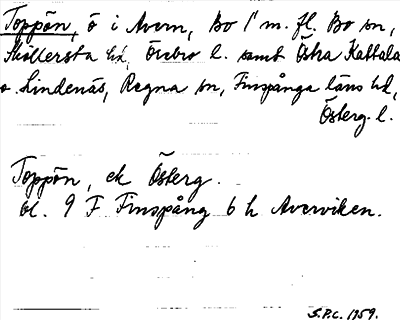 Toppön, ö i Avern, Bo 1 m. fl. Bo sn,
Sköllersta hd, Örebro l. samt Östra Kattala
o. Lindenäs, Regna sn, Finspånga läns hd,
Österg. l.
Toppön, ek Österg.
bl. 9 F Finspång 6 h Averviken.
S.P.C. 1959.